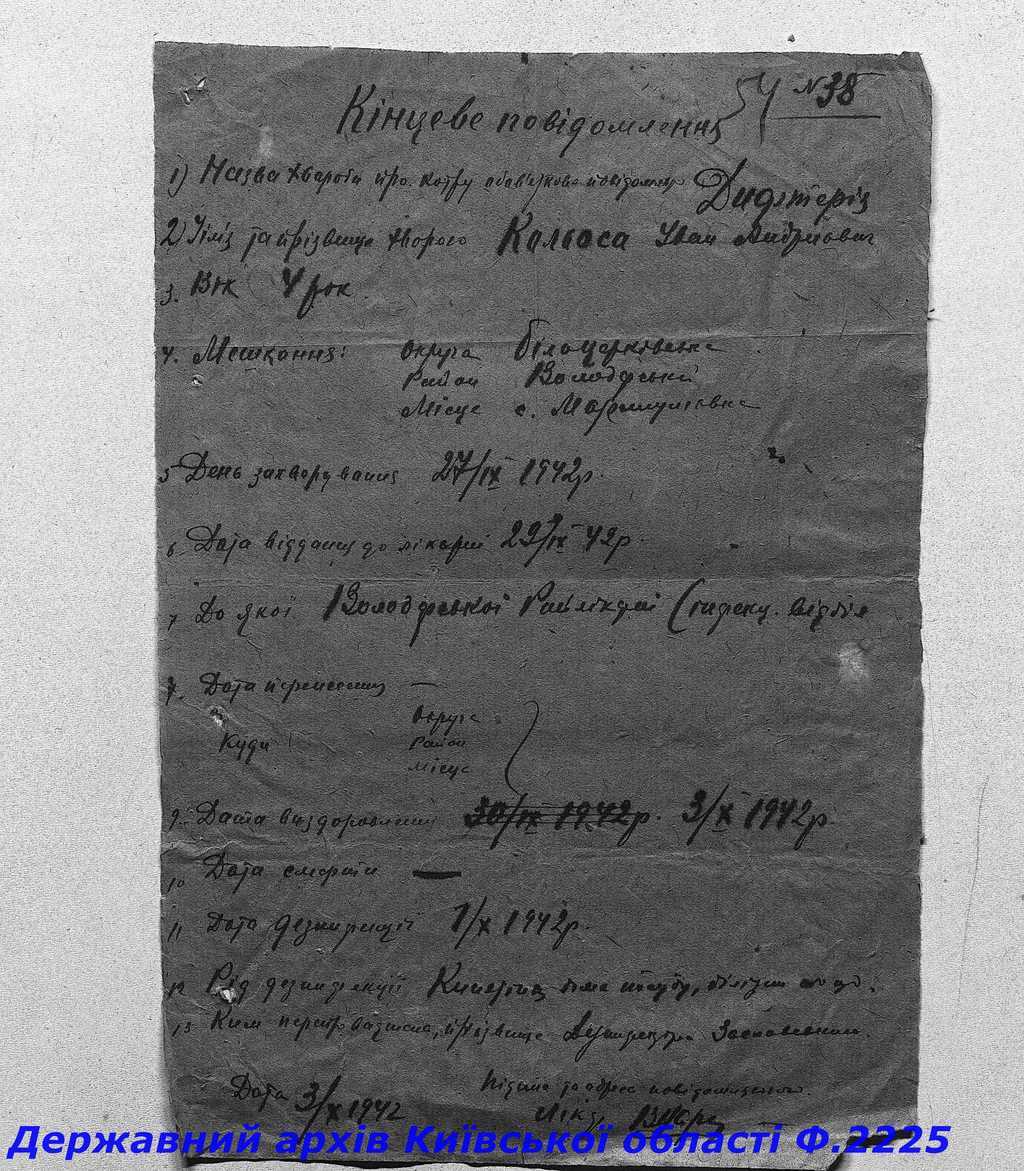 54 № 38
Кінцеве повідомлення
1) Назва хвороби про котру обов'язково повідомлю Дифтерія
2) Ім'я та прізвище хворого Кольоса Іван Андрійович
3. Вік 4 рок.
4. Мешкання: Округа Білоцерківська
Район Володарський
Місце с.
5 День захворування 27/IX 1942р.
6 Дата віддани до лікарні 29/IX 42р.
7 До якої Володарської Райлікарні (інфекц. відділ
7. Дата перенесення —
Округа
Куди Район
Місце
9. Дата виздоровлення 30/IX 1942р. 3/X 1942р.
10 Дата смерти —
11 Дата дезинфекції 1/X 1942р.
12 Рід дезинфекції
13 Ким прізвище Дезинфектор
Дата 3/X 1942 Підпис та адреса
Лікар
Державний архів Київської області Ф.2225